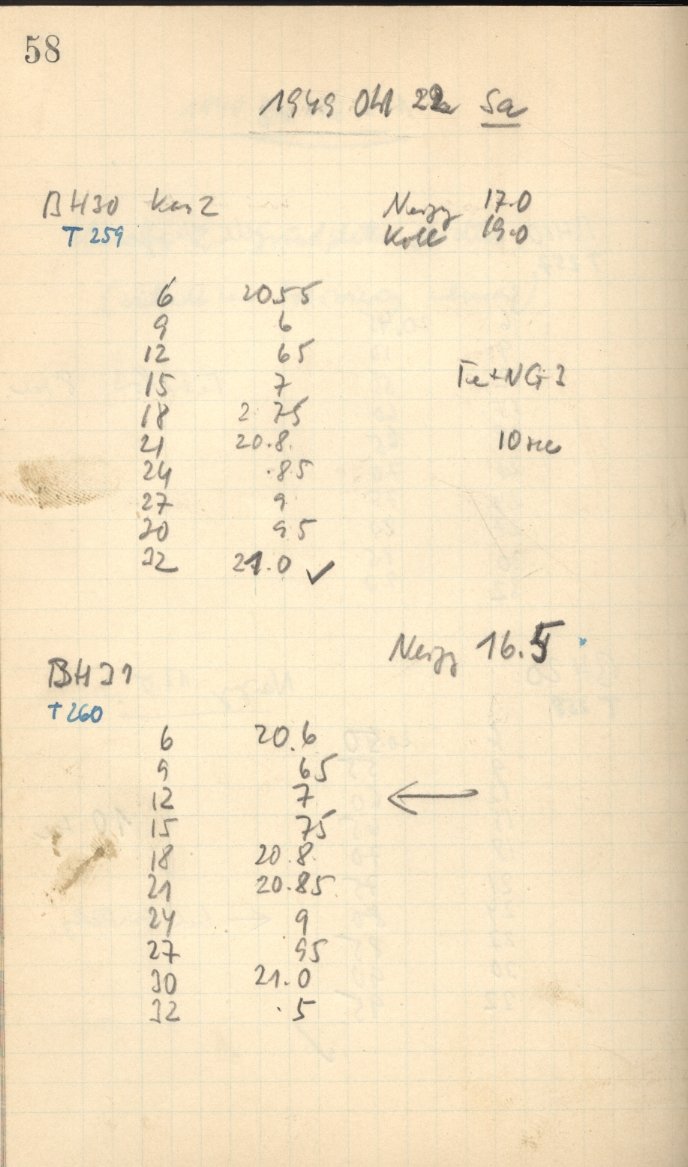 58
1949 Okt 22 Sa
BH30 Kas 2
T 259
Neigg 17.0
Koll 19.0
6 20.55
9 6
12 65
15 7
18 2 75
21 20.8
24 .85
27 9
30 95
32 21.0 ✓
Fe+NG3
10
BH31
T 260
Neigg 16.5
6 20.6
9 65
12 7 ←
15 75
18 20.8
21 20.85
24 9
27 95
30 21.0
32 .5